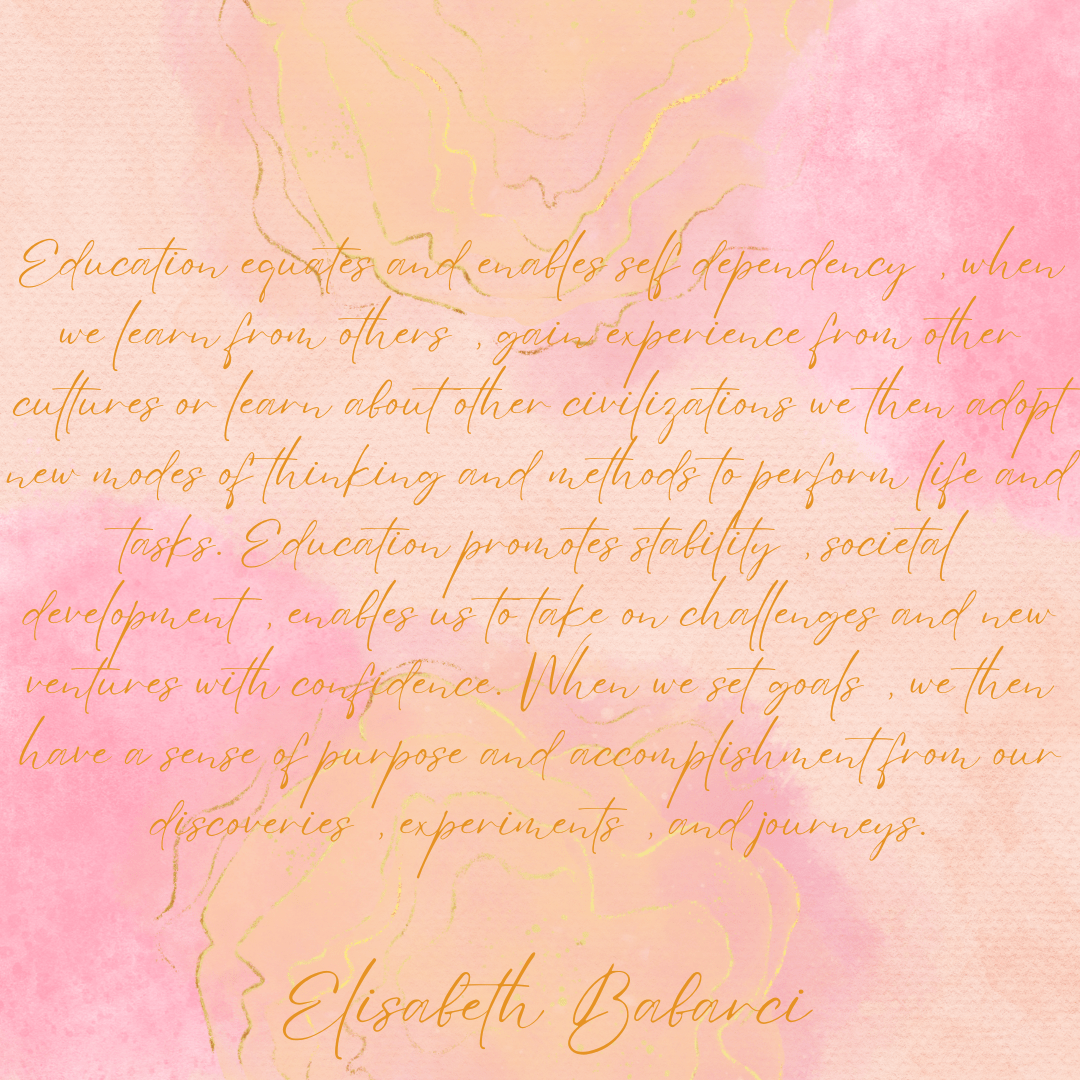 Education equates and enables self dependency , when
we learn from others , gain experience from other
cultures or learn about other civilizations we then adopt
new modes of thinking and methods to perform life and
tasks. Education promotes stability , societal
development , enables us to take on challenges and new
ventures with confidence. When we set goals , we then
have a sense of purpose and accomplishment from our
discoveries , experiments , and journeys.
Elisabeth Babarci